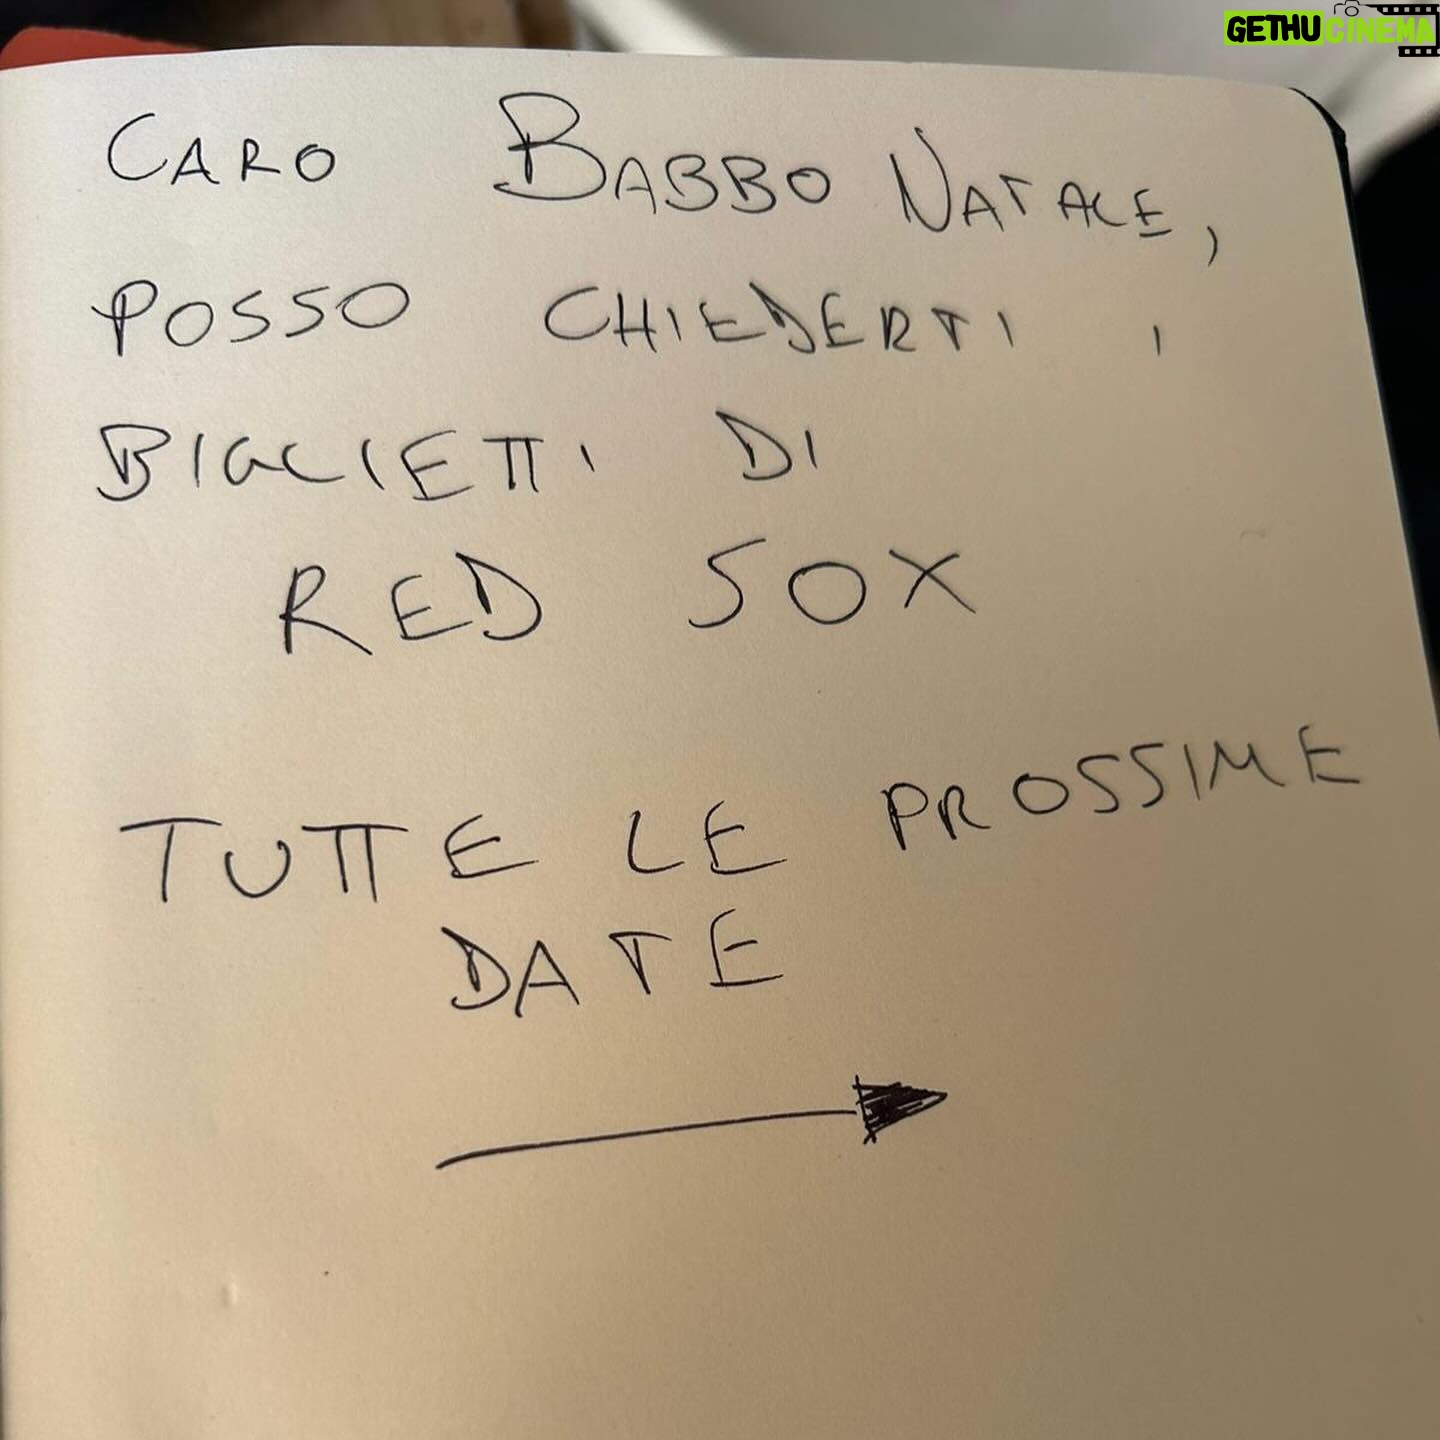 GETHUCINEMA
CARO BABBO NATALE,
POSSO CHIEDERTI I
BIGLIETTI DI
RED SOX
TUTTE LE PROSSIME
DATE